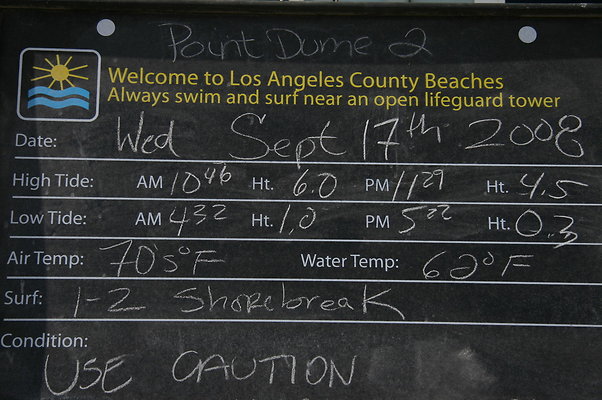 Point Dume 2
Welcome to Los Angeles County Beaches
Always swim and surf near an open lifeguard tower
Date: Wed Sept 17th 2008
High Tide: AM 1046 Ht. 6.0 PM 1129 Ht. 4.5
Low Tide: AM 432 Ht. 1.0 PM 522 Ht. 0.3
Air Temp: 70's°F Water Temp: 62°F
Surf: 1-2 Shorebreak
Condition:
USE CAUTION